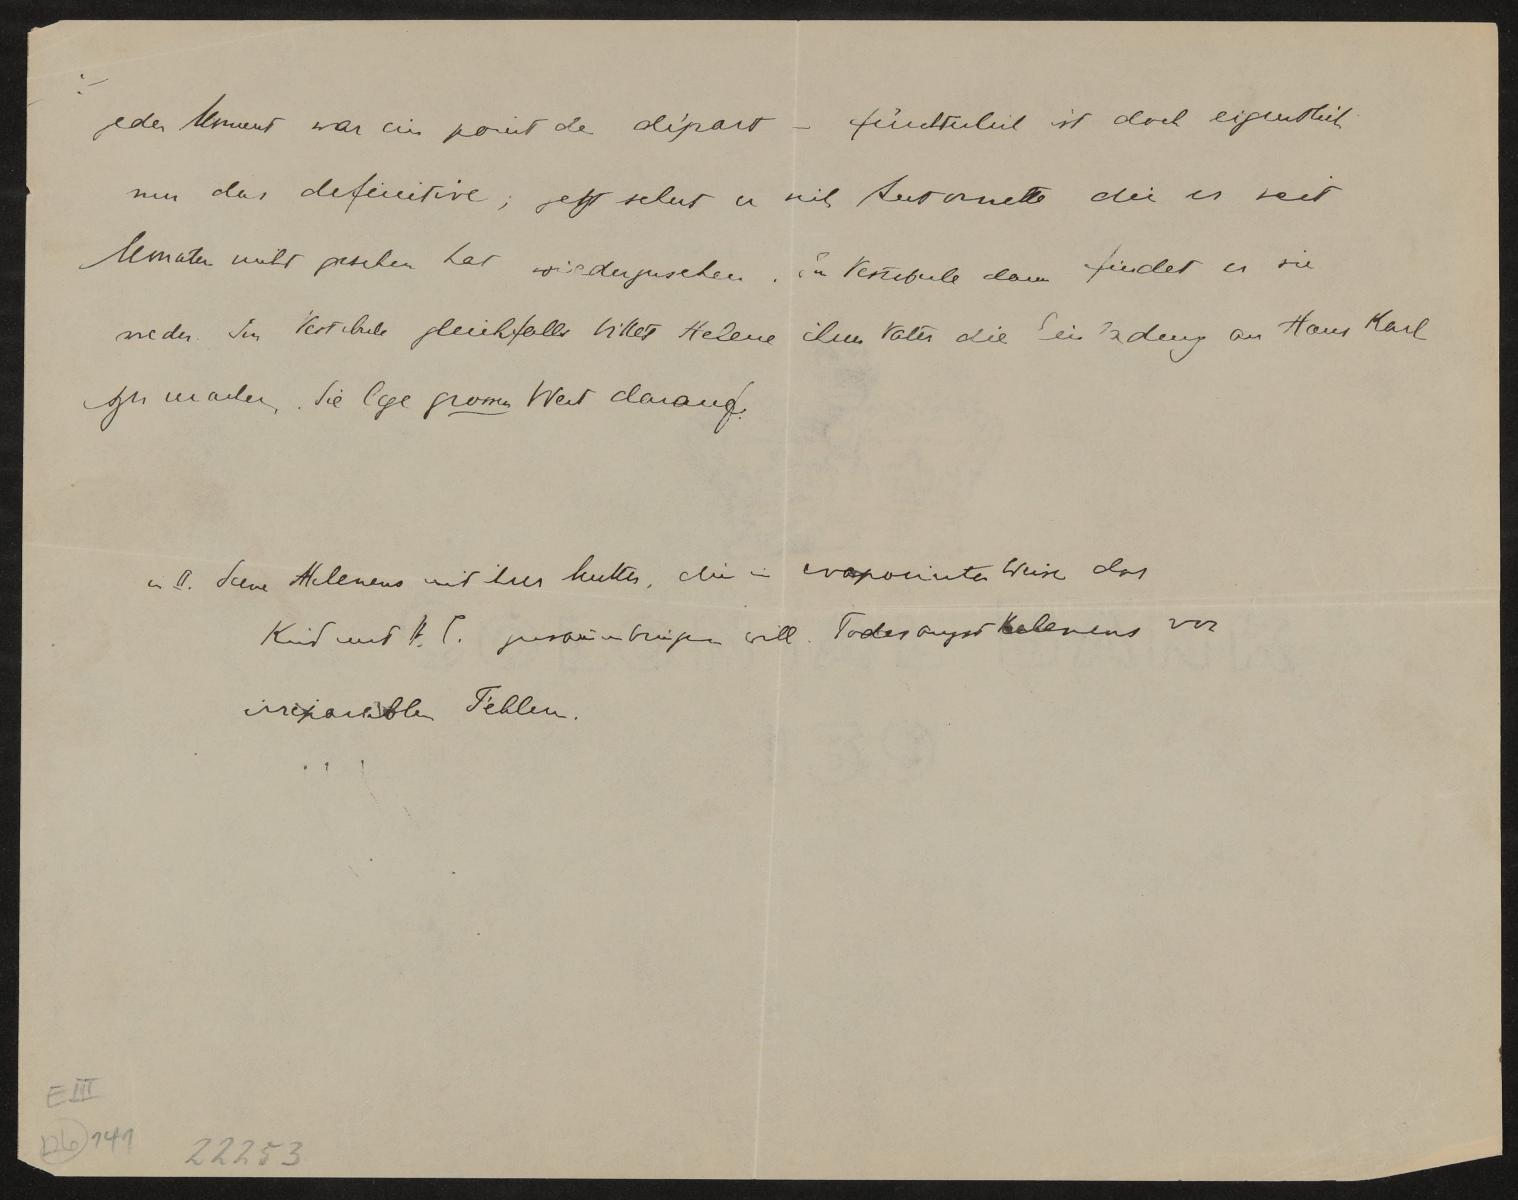 jeder Moment war ein point de départ — fürchterlich ist doch eigentlich
nur das definitive; jetzt sehnt er sich Antoinette die er seit
Monaten nicht gesehen hat wiederzusehen. im Vestibule dann findet er sie
wieder. Im Vestibule gleichfalls bittet Helene ihren Vater die Einladung an Hans Karl
zu machen. Sie lege grossen Wert darauf.
in II. Scene Helenens mit ihrer Mutter, die in Weise das
Kind mit H. C. zusammbringen will. Todesangst Helenens vor
irreparablen Fehlern.
E III
126 141
22253